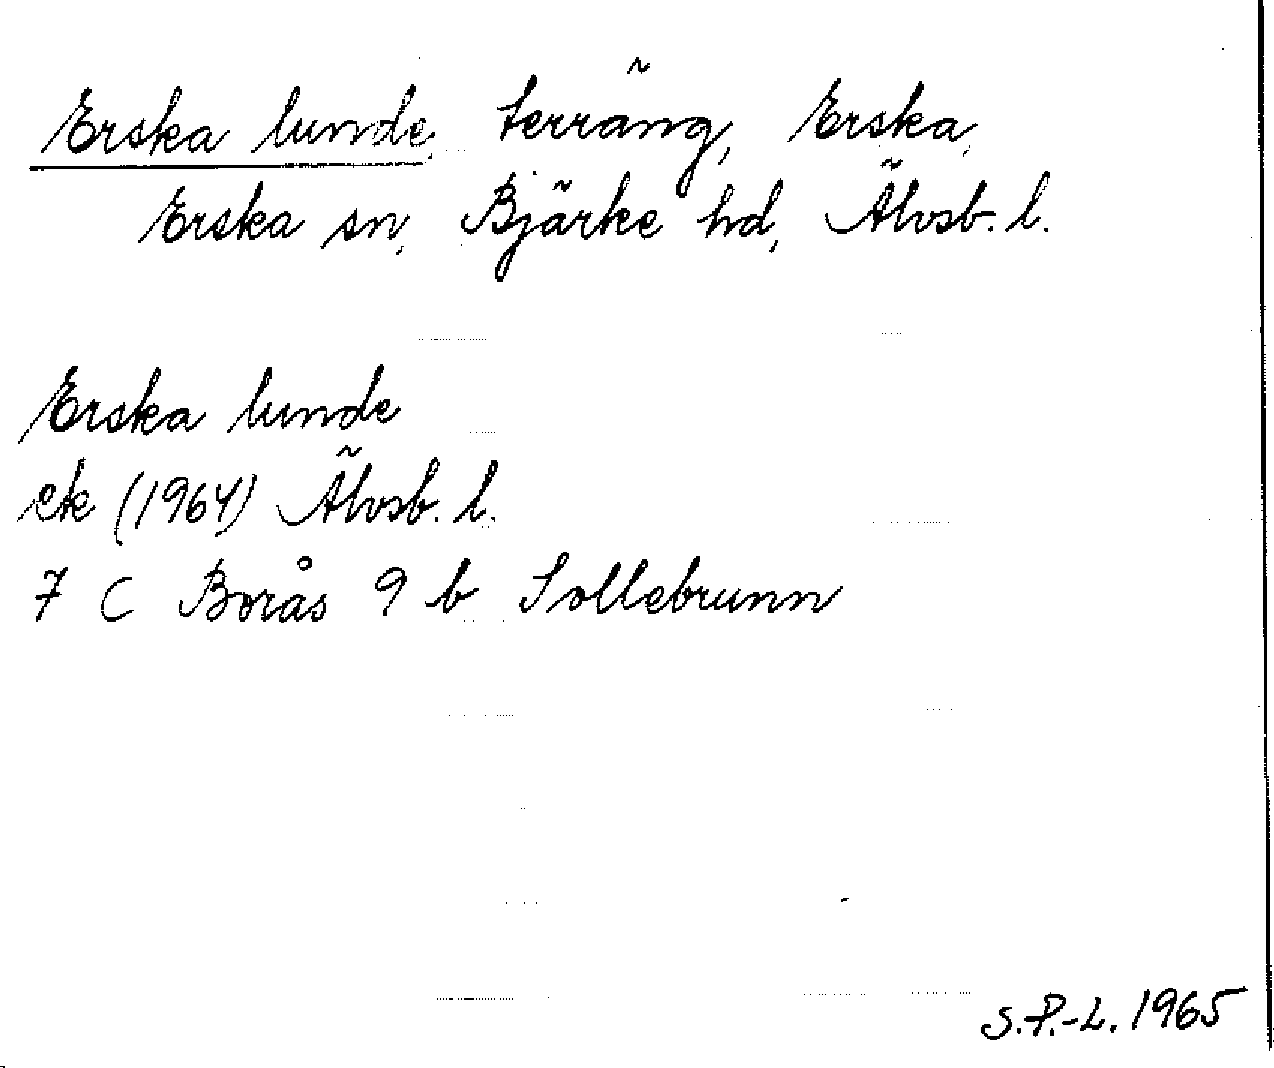 Erska lunde, terräng, Erska,
Erska sn, Bjärke hd, Älvsb. l.
Erska lunde
ek (1964) Älvsb. l.
7 C Borås 9 b Sollebrunn
S.P.-L. 1965